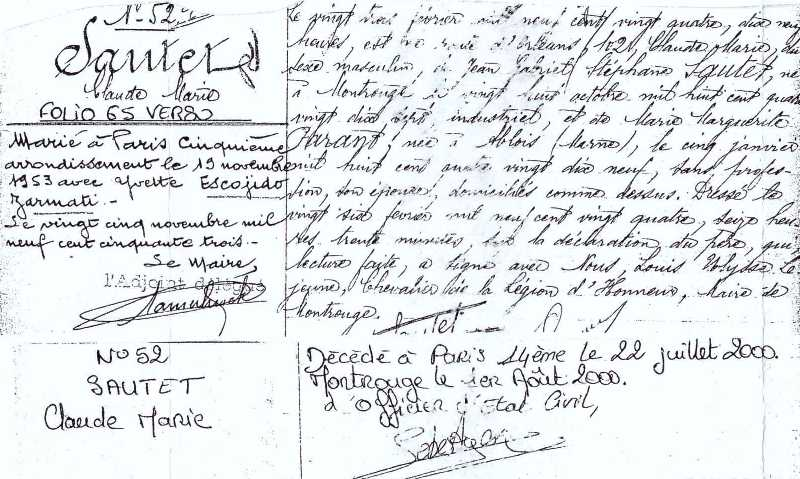 N° 52
Sautet
Claude Marie
FOLIO 65 VERSO
Marié à Paris Cinquième
arrondissement le 19 novembre
1953 avec Yvette Escojido
Zarmati.-
Le vingt cinq novembre mil
neuf cent cinquante trois.-
Le Maire,
l'Adjoint délégué
Le vingt trois février mil neuf cent vingt quatre, dix neuf
heures, est né route d'Orléans 121, Claude Marie, du
sexe masculin, de Jean Gabriel Stéphane Sautet, né
à Montrouge le vingt huit octobre mil huit cent quatre
vingt dix sept industriel, et de Marie Marguerite
née à Ablois (Marne), le cinq janvier
mil huit cent quatre vingt dix neuf, sans profes-
sion, son épouse, domiciliés comme dessus. Dressé le
vingt six février mil neuf cent vingt quatre, seize heu-
res trente minutes, sur la déclaration du père, qui
lecture faite, a signé avec Nous, Louis Ulysse Le
jeune, Chevalier de la Légion d'Honneur, Maire de
Montrouge.
N° 52
SAUTET
Claude Marie
Décédé à Paris 14ème le 22 juillet 2000.
Montrouge le 1er Août 2000.
L'Officier d'Etat Civil,